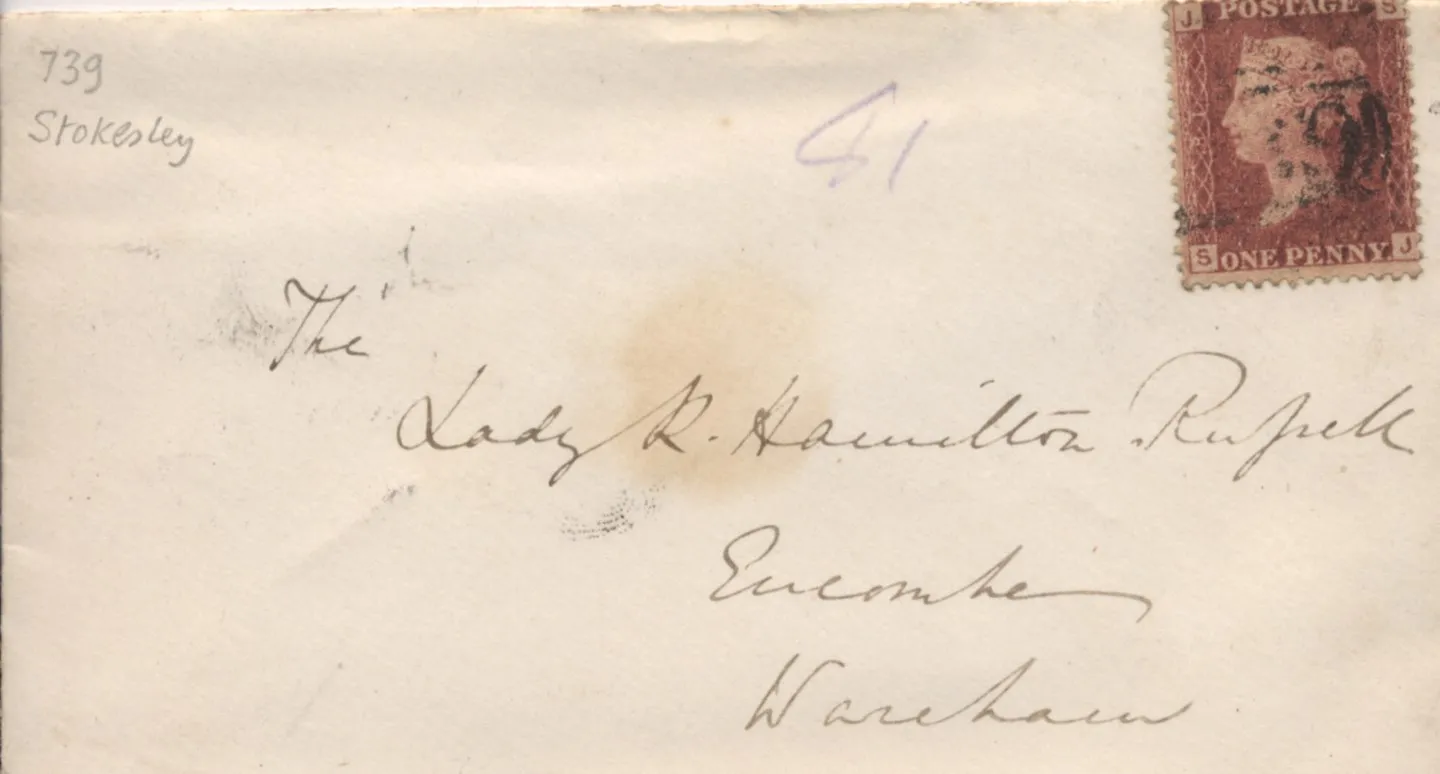 739
Stokesley
81
J POSTAGE S
S ONE PENNY J
The
Lady R. Hamilton Russell
Encombe
Wareham